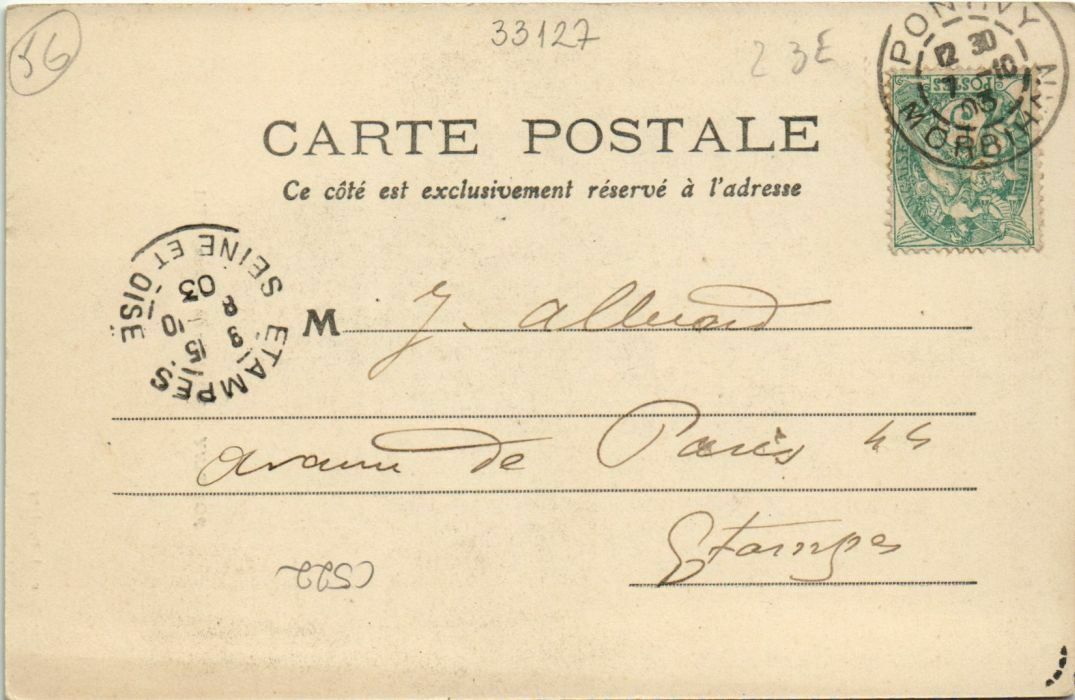 56
33127
2 3E
PONTIVY
12 30
7 -10
03
MORBIHAN
POSTES
CARTE POSTALE
Ce côté est exclusivement réservé à l'adresse
ETAMPES
SEINE ET OISE
15
8 10
03
M J. Alluard
avenue de Paris 44
Etampes
CS22